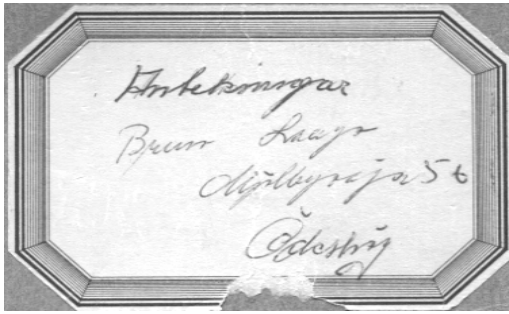 Anteckningar
Bruno Laago
Mjölbyväja 56
Ödeshög